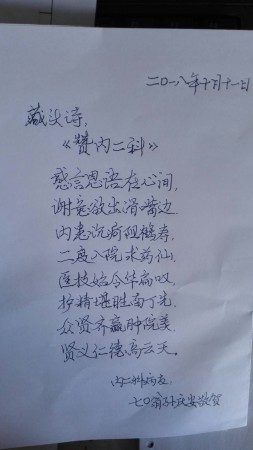 二〇一八年十月十一日
藏头诗，
《赞内二科》
感言恩语在心间，
谢意欲出滑嘴边，
内患沉疴阻稀寿，
二度入院求药仙，
医技始令华扁叹，
护精堪胜南丁先，
众贤齐赢肿院美，
贤义仁德高云天。
内二科病友
七〇翁 敬贺